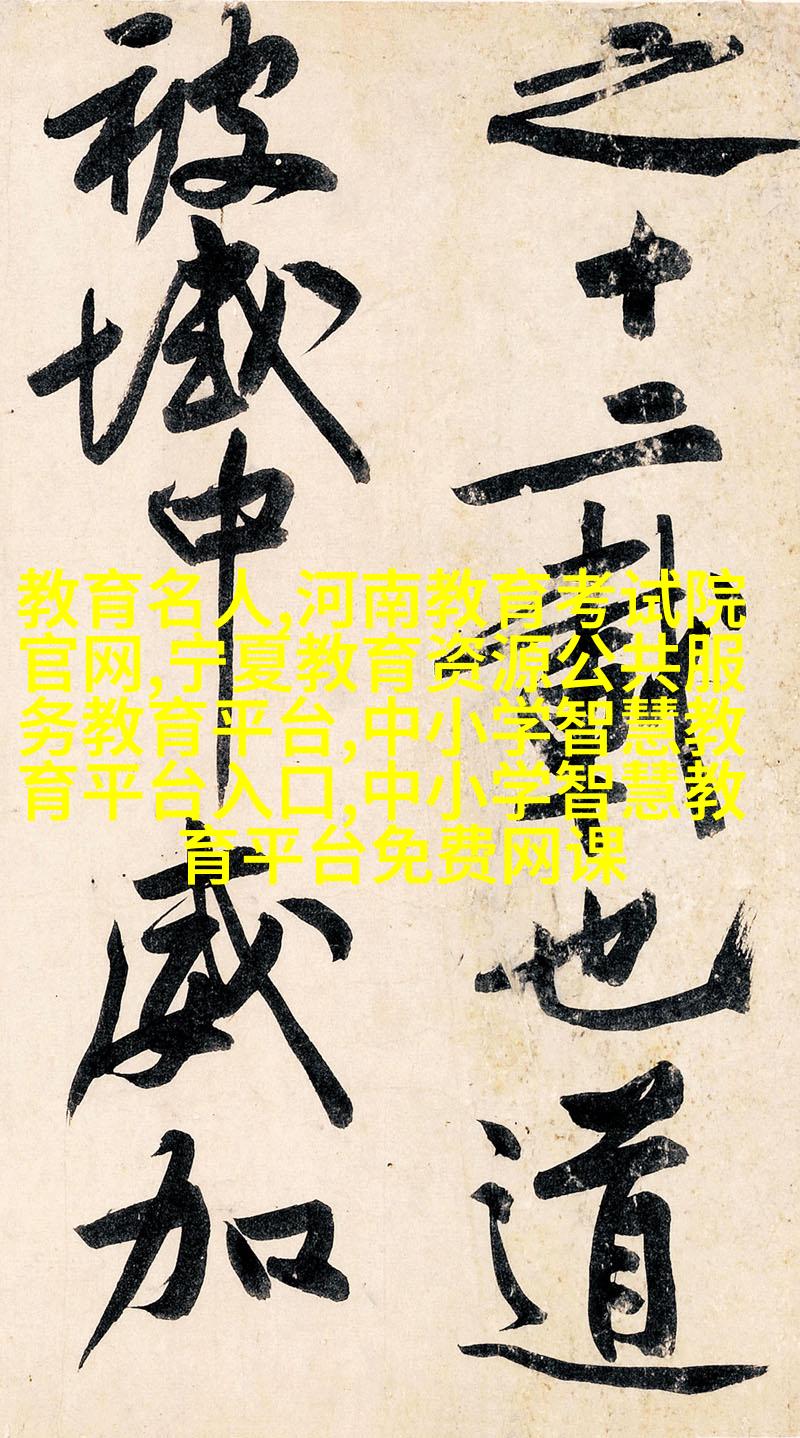 之十二載也道
被域中威加
教育名人,河南教育考试院
官网,宁夏教育资源公共服
务教育平台,中小学智慧教
育平台入口,中小学智慧教
育平台免费网课